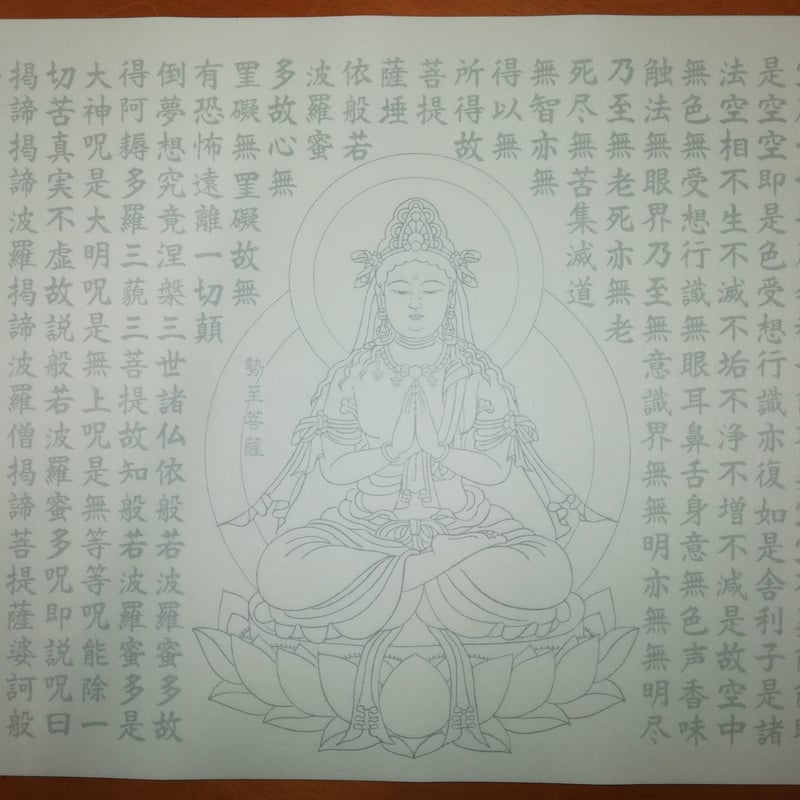 是空空即是色受想行識亦復如是舎利子是諸
法空相不生不滅不垢不浄不増不減是故空中
無色無受想行識無眼耳鼻舌身意無色声香味
触法無眼界乃至無意識界無無明亦無無明尽
乃至無老死亦無老
死尽無苦集滅道
無智亦無
得以無
所得故
菩提
薩埵
依般若
波羅蜜
多故心無
罣礙無罣礙故無
有恐怖遠離一切顛
勢至菩薩
倒夢想究竟涅槃三世諸仏依般若波羅蜜多故
得阿耨多羅三藐三菩提故知般若波羅蜜多是
大神呪是大明呪是無上呪是無等等呪能除一
切苦真実不虚故説般若波羅蜜多呪即説呪曰
掲諦掲諦波羅掲諦波羅僧掲諦菩提薩婆訶般